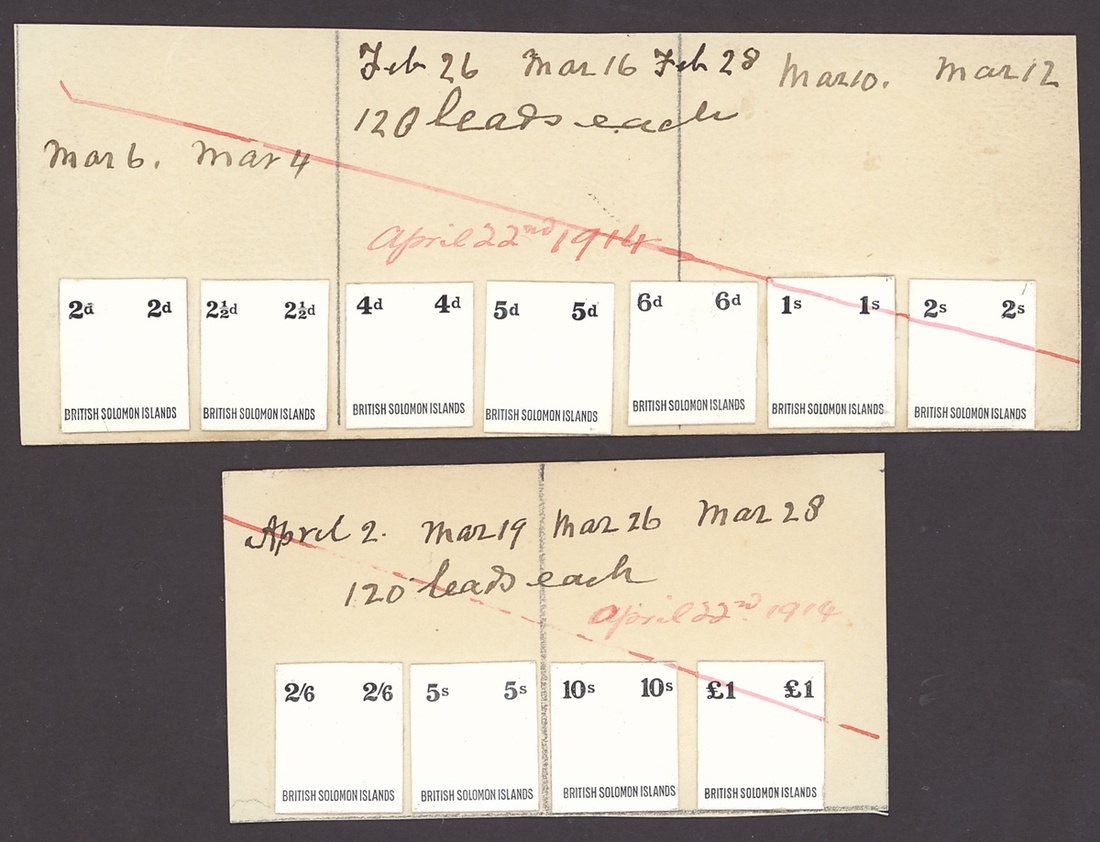 Feb 26 Mar 16 Feb 28 Mar 10. Mar 12
120 leads each
Mar 6. Mar 4
April 22nd 1914
2d 2d 2½d 2½d 4d 4d 5d 5d 6d 6d 1s 1s 2s 2s
BRITISH SOLOMON ISLANDS BRITISH SOLOMON ISLANDS BRITISH SOLOMON ISLANDS BRITISH SOLOMON ISLANDS BRITISH SOLOMON ISLANDS BRITISH SOLOMON ISLANDS BRITISH SOLOMON ISLANDS
April 2. Mar 19 Mar 26 Mar 28
120 leads each
April 22nd 1914
2/6 2/6 5s 5s 10s 10s £1 £1
BRITISH SOLOMON ISLANDS BRITISH SOLOMON ISLANDS BRITISH SOLOMON ISLANDS BRITISH SOLOMON ISLANDS